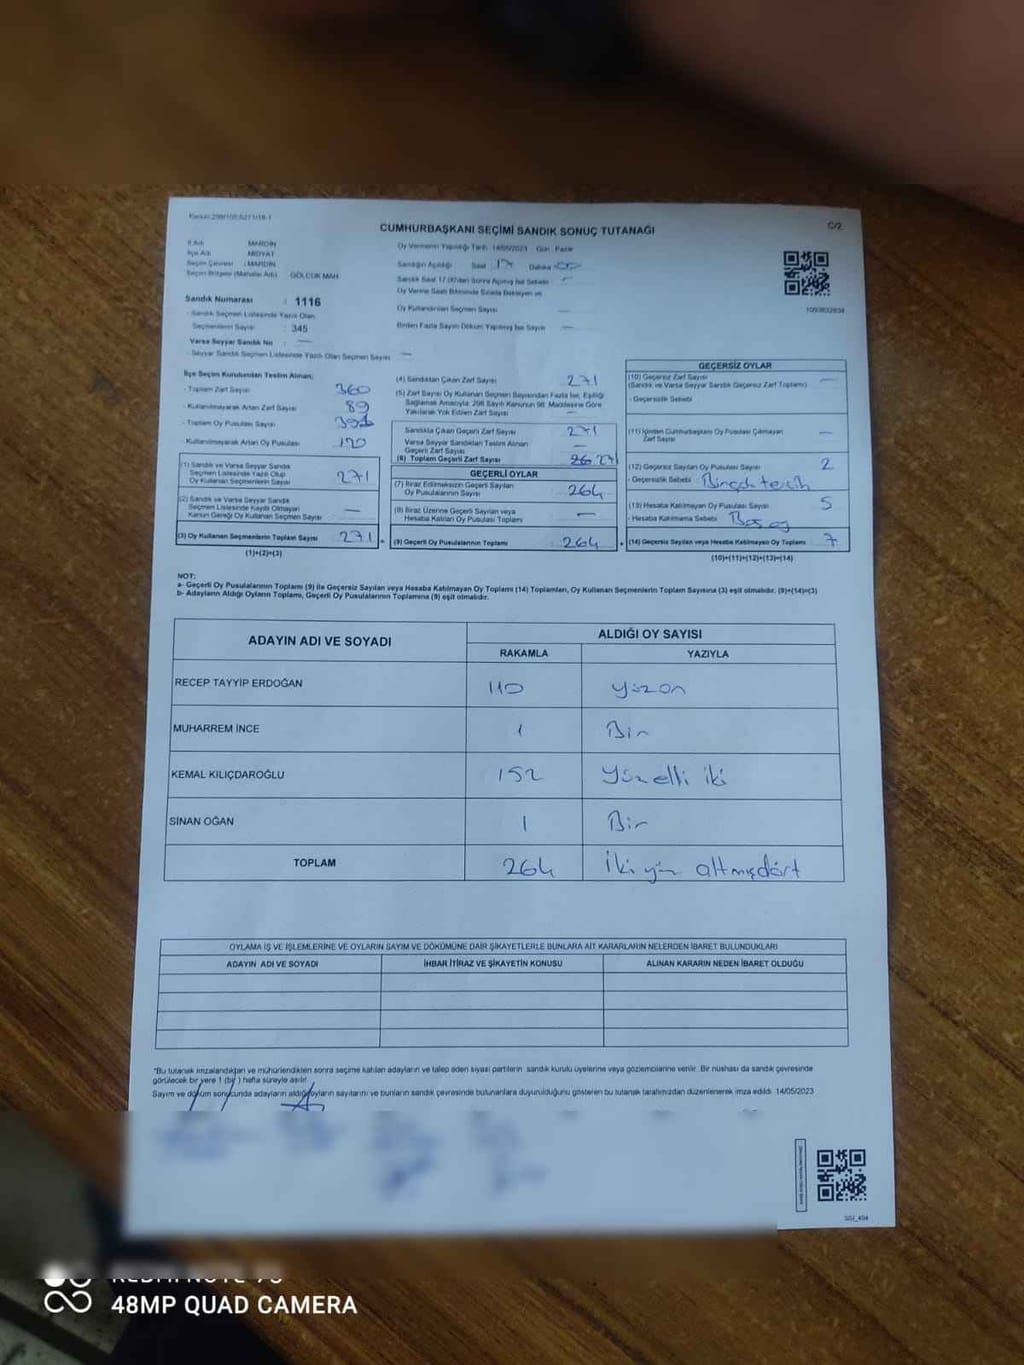 CUMHURBAŞKANI SEÇİMİ SANDIK SONUÇ TUTANAĞI
C/2
İl Adı MARDİN
İlçe Adı MİDYAT
Seçim Çevresi : MARDİN
Seçim Bölgesi (Mahalle Adı) GÖLCÜK MAH.
Oy Vermenin Yapıldığı Tarih 14/05/2023 Gün Pazar
Sandığın Açıldığı Saat 17 Dakika 00
Oy Verme Saati Bitiminde Sırada Bekleyen ve
Oy Kullandırılan Seçmen Sayısı —
Birden Fazla Sayım Döküm Yapılmış İse Sayısı —
Sandık Numarası : 1116
- Sandık Seçmen Listesinde Yazılı Olan
Seçmenlerin Sayısı : 345
Varsa Seyyar Sandık No : —
- Seyyar Sandık Seçmen Listesinde Yazılı Olan Seçmen Sayısı —
İlçe Seçim Kurulundan Teslim Alınan;
- Toplam Zarf Sayısı 360
- Kullanılmayarak Artan Zarf Sayısı 89
- Toplam Oy Pusulası Sayısı
- Kullanılmayarak Artan Oy Pusulası
(1) Sandık ve Varsa Seyyar Sandık
Seçmen Listesinde Yazılı Olup
Oy Kullanan Seçmenlerin Sayısı 271
(2) Sandık ve Varsa Seyyar Sandık
Seçmen Listesinde Kayıtlı Olmayan
Kanun Gereği Oy Kullanan Seçmen Sayısı —
(3) Oy Kullanan Seçmenlerin Toplam Sayısı 271
(1)+(2)=(3)
(4) Sandıktan Çıkan Zarf Sayısı 271
(5) Zarf Sayısı Oy Kullanan Seçmen Sayısından Fazla İse, Eşitliği
Sağlamak Amacıyla; 298 Sayılı Kanunun 98. Maddesine Göre
Yakılarak Yok Edilen Zarf Sayısı —
Sandıkta Çıkan Geçerli Zarf Sayısı 271
Varsa Seyyar Sandıktan Teslim Alınan
Geçerli Zarf Sayısı —
(6) Toplam Geçerli Zarf Sayısı 271
GEÇERLİ OYLAR
(7) İtiraz Edilmeksizin Geçerli Sayılan
Oy Pusulalarının Sayısı 264
(8) İtiraz Üzerine Geçerli Sayılan veya
Hesaba Katılan Oy Pusulası Toplamı —
(9) Geçerli Oy Pusulalarının Toplamı 264
GEÇERSİZ OYLAR
(10) Geçersiz Zarf Sayısı —
(Sandık ve Varsa Seyyar Sandık Geçersiz Zarf Toplamı)
- Geçersizlik Sebebi
(11) İçinden Cumhurbaşkanı Oy Pusulası Çıkmayan
Zarf Sayısı —
(12) Geçersiz Sayılan Oy Pusulası Sayısı 2
- Geçersizlik Sebebi tercih
(13) Hesaba Katılmayan Oy Pusulası Sayısı 5
- Hesaba Katılmama Sebebi Boş oy
(14) Geçersiz Sayılan veya Hesaba Katılmayan Oy Toplamı 7
(10)+(11)+(12)+(13)=(14)
NOT:
a- Geçerli Oy Pusulalarının Toplamı (9) ile Geçersiz Sayılan veya Hesaba Katılmayan Oy Toplamı (14) Toplamları, Oy Kullanan Seçmenlerin Toplam Sayısına (3) eşit olmalıdır. (9)+(14)=(3)
b- Adayların Aldığı Oyların Toplamı, Geçerli Oy Pusulalarının Toplamına (9) eşit olmalıdır.
ADAYIN ADI VE SOYADI ALDIĞI OY SAYISI
RAKAMLA YAZIYLA
RECEP TAYYİP ERDOĞAN 110 Yüzon
MUHARREM İNCE 1 Bir
KEMAL KILIÇDAROĞLU 152 Yüzelli iki
SİNAN OĞAN 1 Bir
TOPLAM 264 İki yüz altmışdört
OYLAMA İŞ VE İŞLEMLERİNE VE OYLARIN SAYIM VE DÖKÜMÜNE DAİR ŞİKAYETLERLE BUNLARA AİT KARARLARIN NELERDEN İBARET BULUNDUKLARI
ADAYIN ADI VE SOYADI İHBAR İTİRAZ VE ŞİKAYETİN KONUSU ALINAN KARARIN NEDEN İBARET OLDUĞU
*Bu tutanak imzalandıktan ve mühürlendikten sonra seçime katılan adayların ve talep eden siyasi partilerin sandık kurulu üyelerine veya gözlemcilerine verilir. Bir nüshası da sandık çevresinde
görülecek bir yere 1 (bir) hafta süreyle asılır.
Sayım ve döküm sonucunda adayların aldığı oyların sayılarını ve bunların sandık çevresinde bulunanlara duyurulduğunu gösteren bu tutanak tarafımızdan düzenlenerek imza edildi. 14/05/2023
48MP QUAD CAMERA